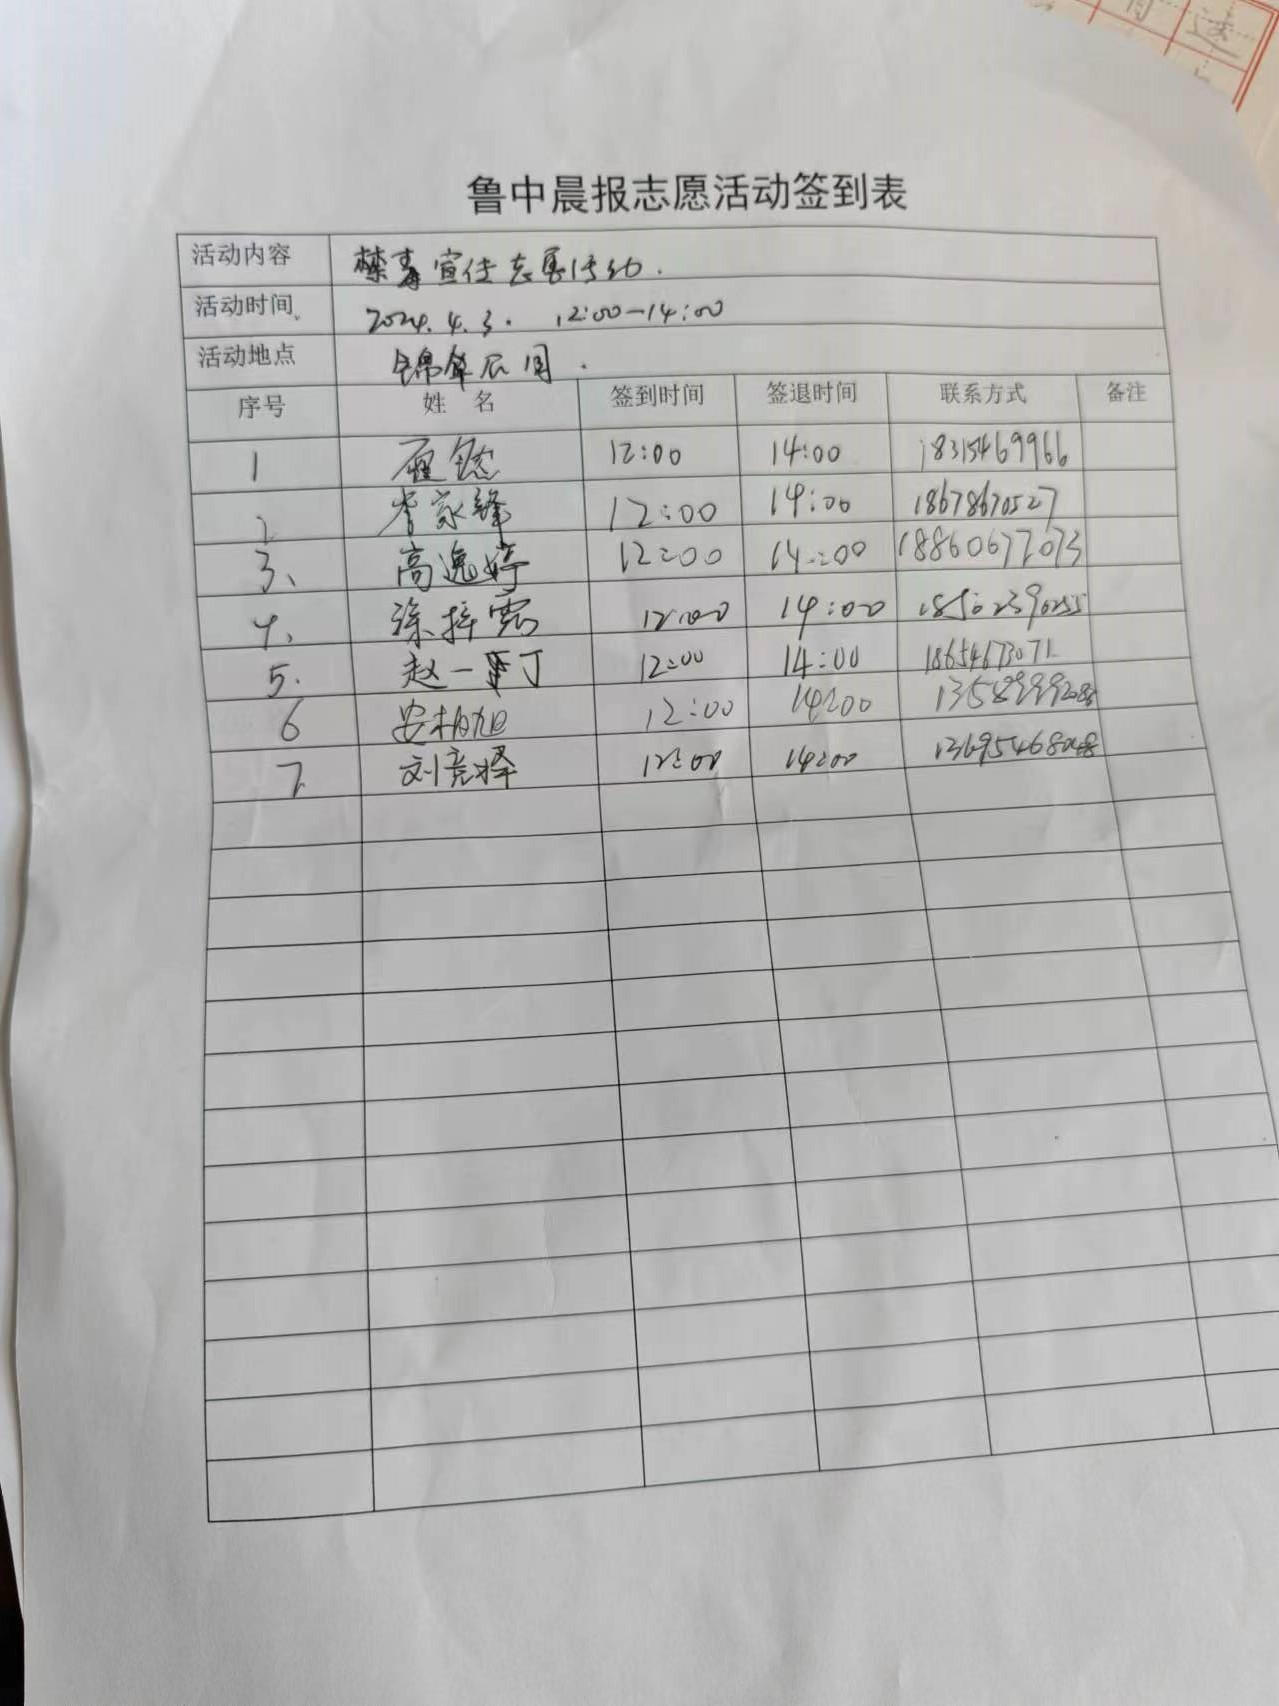 鲁中晨报志愿活动签到表
活动内容 禁毒宣传志愿活动.
活动时间 2024.4.3. 12:00—14:00
活动地点 锦华
序号 姓 名 签到时间 签退时间 联系方式 备注
1 12:00 14:00 18315469966
2 李家锋 12:00 14:00 18678670527
3、 高逸婷 12:00 14:00 18860677073
4、 涂梓霓 12:00 14:00 18562390255
5. 赵一丁 12:00 14:00 18654673071
6 安柏旭 12:00 14:00
7 刘竞择 12:00 14:00 13695468048